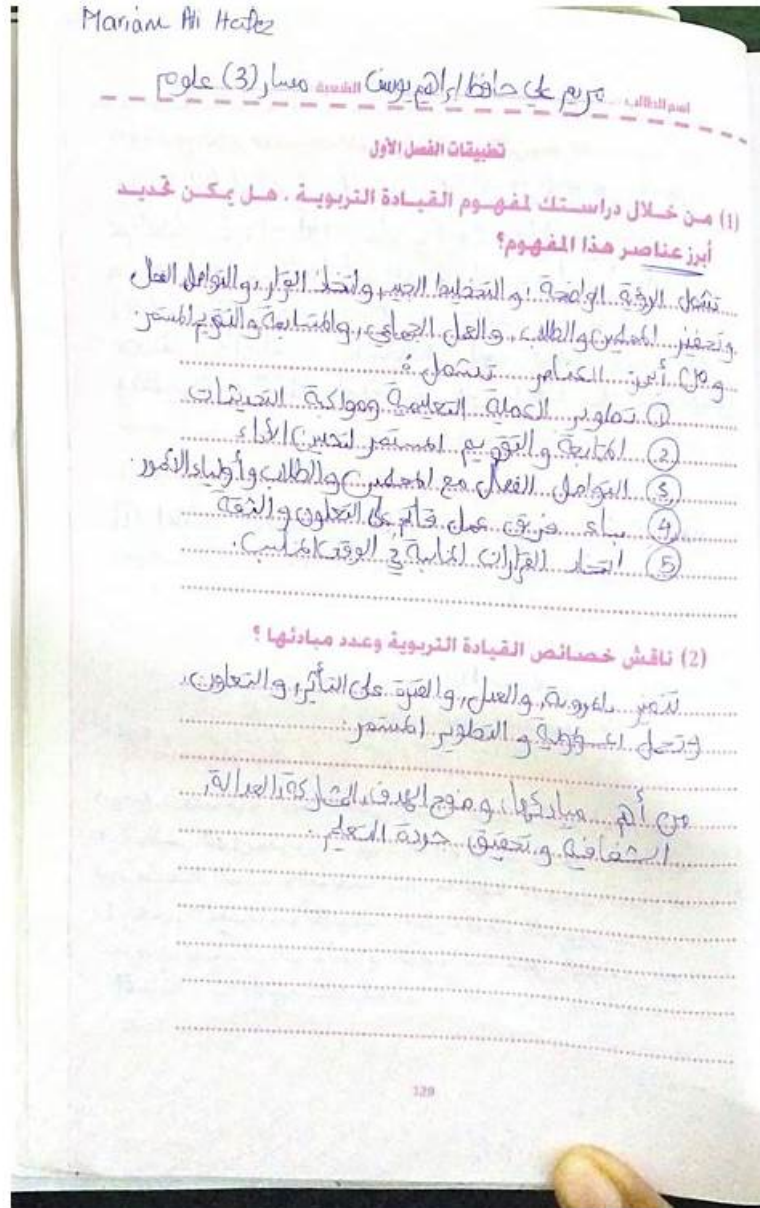 Mariam Ali Hafez
اسم الطالب: مريم علي حافظ إبراهيم يوسف الشعبة مسار (3) علوم
تطبيقات الفصل الأول
(1) من خلال دراستك لمفهوم القيادة التربوية . هل يمكن تحديد
أبرز عناصر هذا المفهوم؟
تشمل الرؤية الواضحة، والتخطيط الجيد، واتخاذ القرار، والتواصل الفعال
وتحفيز المعلمين والطلاب، والعمل الجماعي، والمتابعة والتقويم المستمر.
ومن أبرز العناصر تشمل:
① تطوير العملية التعليمية ومواكبة التحديثات
② المتابعة والتقويم المستمر لتحسين الأداء
③ التواصل الفعال مع المعلمين والطلاب وأولياء الأمور.
④ بناء فريق عمل قائم على التعاون والثقة
⑤ اتخاذ القرارات المناسبة في الوقت المناسب.
(2) ناقش خصائص القيادة التربوية وعدد مبادئها ؟
تتميز بالمرونة، والعدل، والقدرة على التأثير، والتعاون،
وتحمل المسؤولية و التطوير المستمر.
من أهم مبادئها، وضوح الهدف، المشاركة، العدالة،
الشفافية وتحقيق جودة التعليم.
129